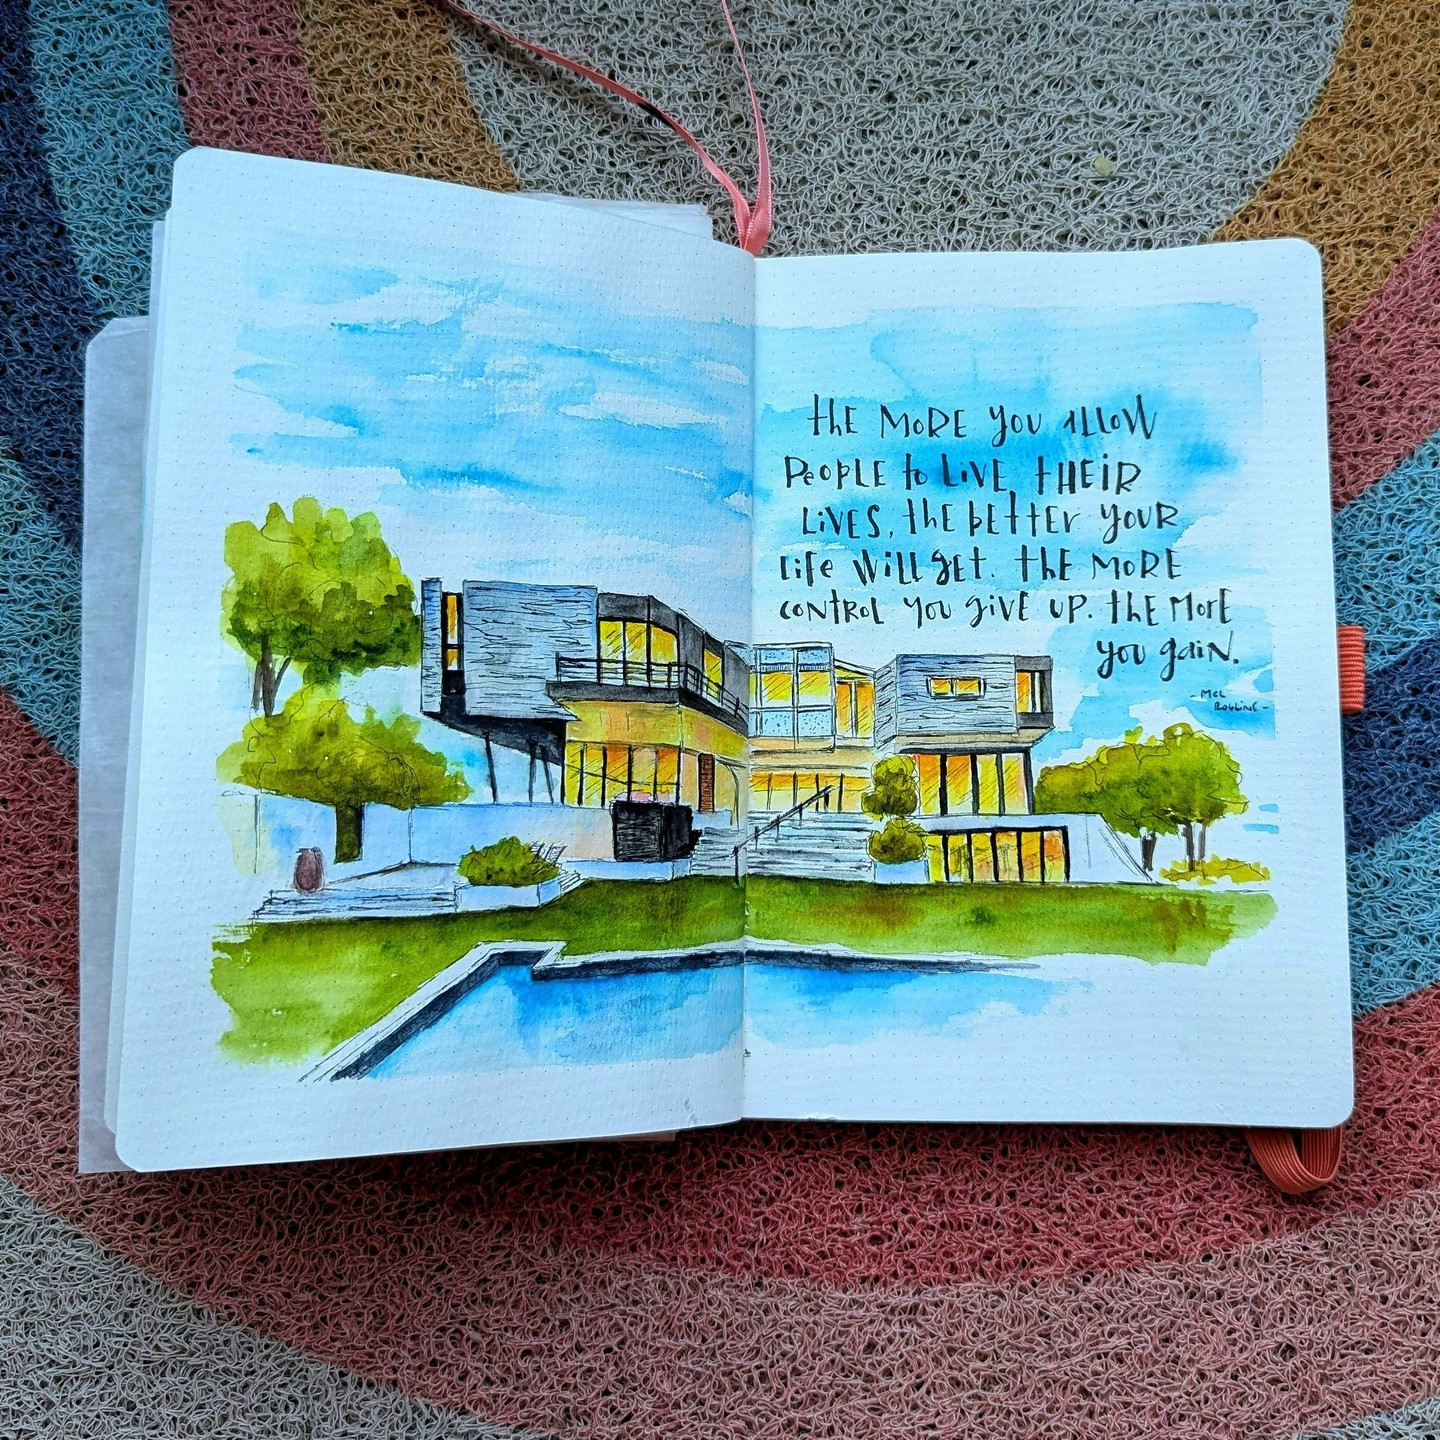 the MORE you ALLOW
PEOPLE to LiVE THEIR
LiVES, thE bEttEr YOUR
life WiLL gET. thE MORE
CONTROL you giVE UP. thE MorE
you gaiN.
- MEL
ROBBiNS -